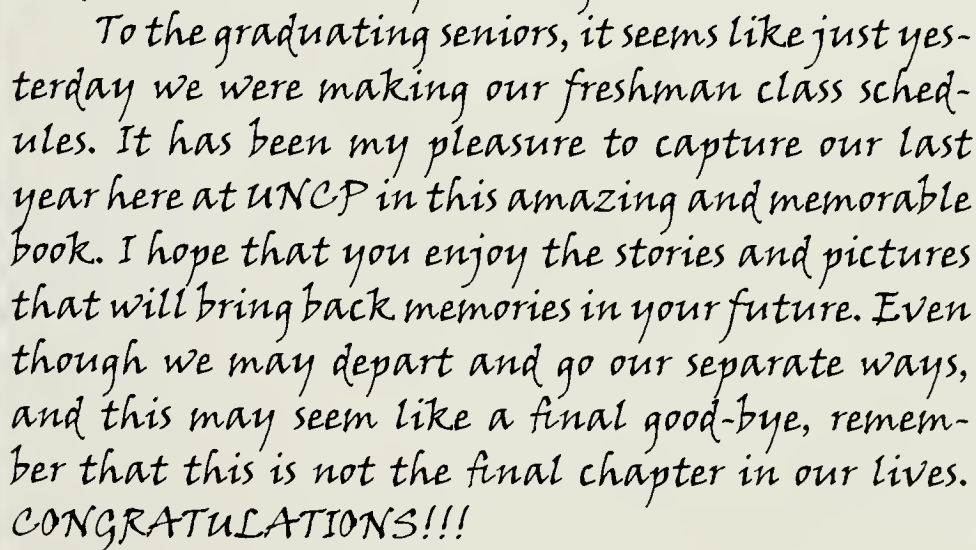 To the graduating seniors, it seems like just yes-
terday we were making our freshman class sched-
ules. It has been my pleasure to capture our last
year here at UNCP in this amazing and memorable
book. I hope that you enjoy the stories and pictures
that will bring back memories in your future. Even
though we may depart and go our separate ways,
and this may seem like a final good-bye, remem-
ber that this is not the final chapter in our lives.
CONGRATULATIONS!!!